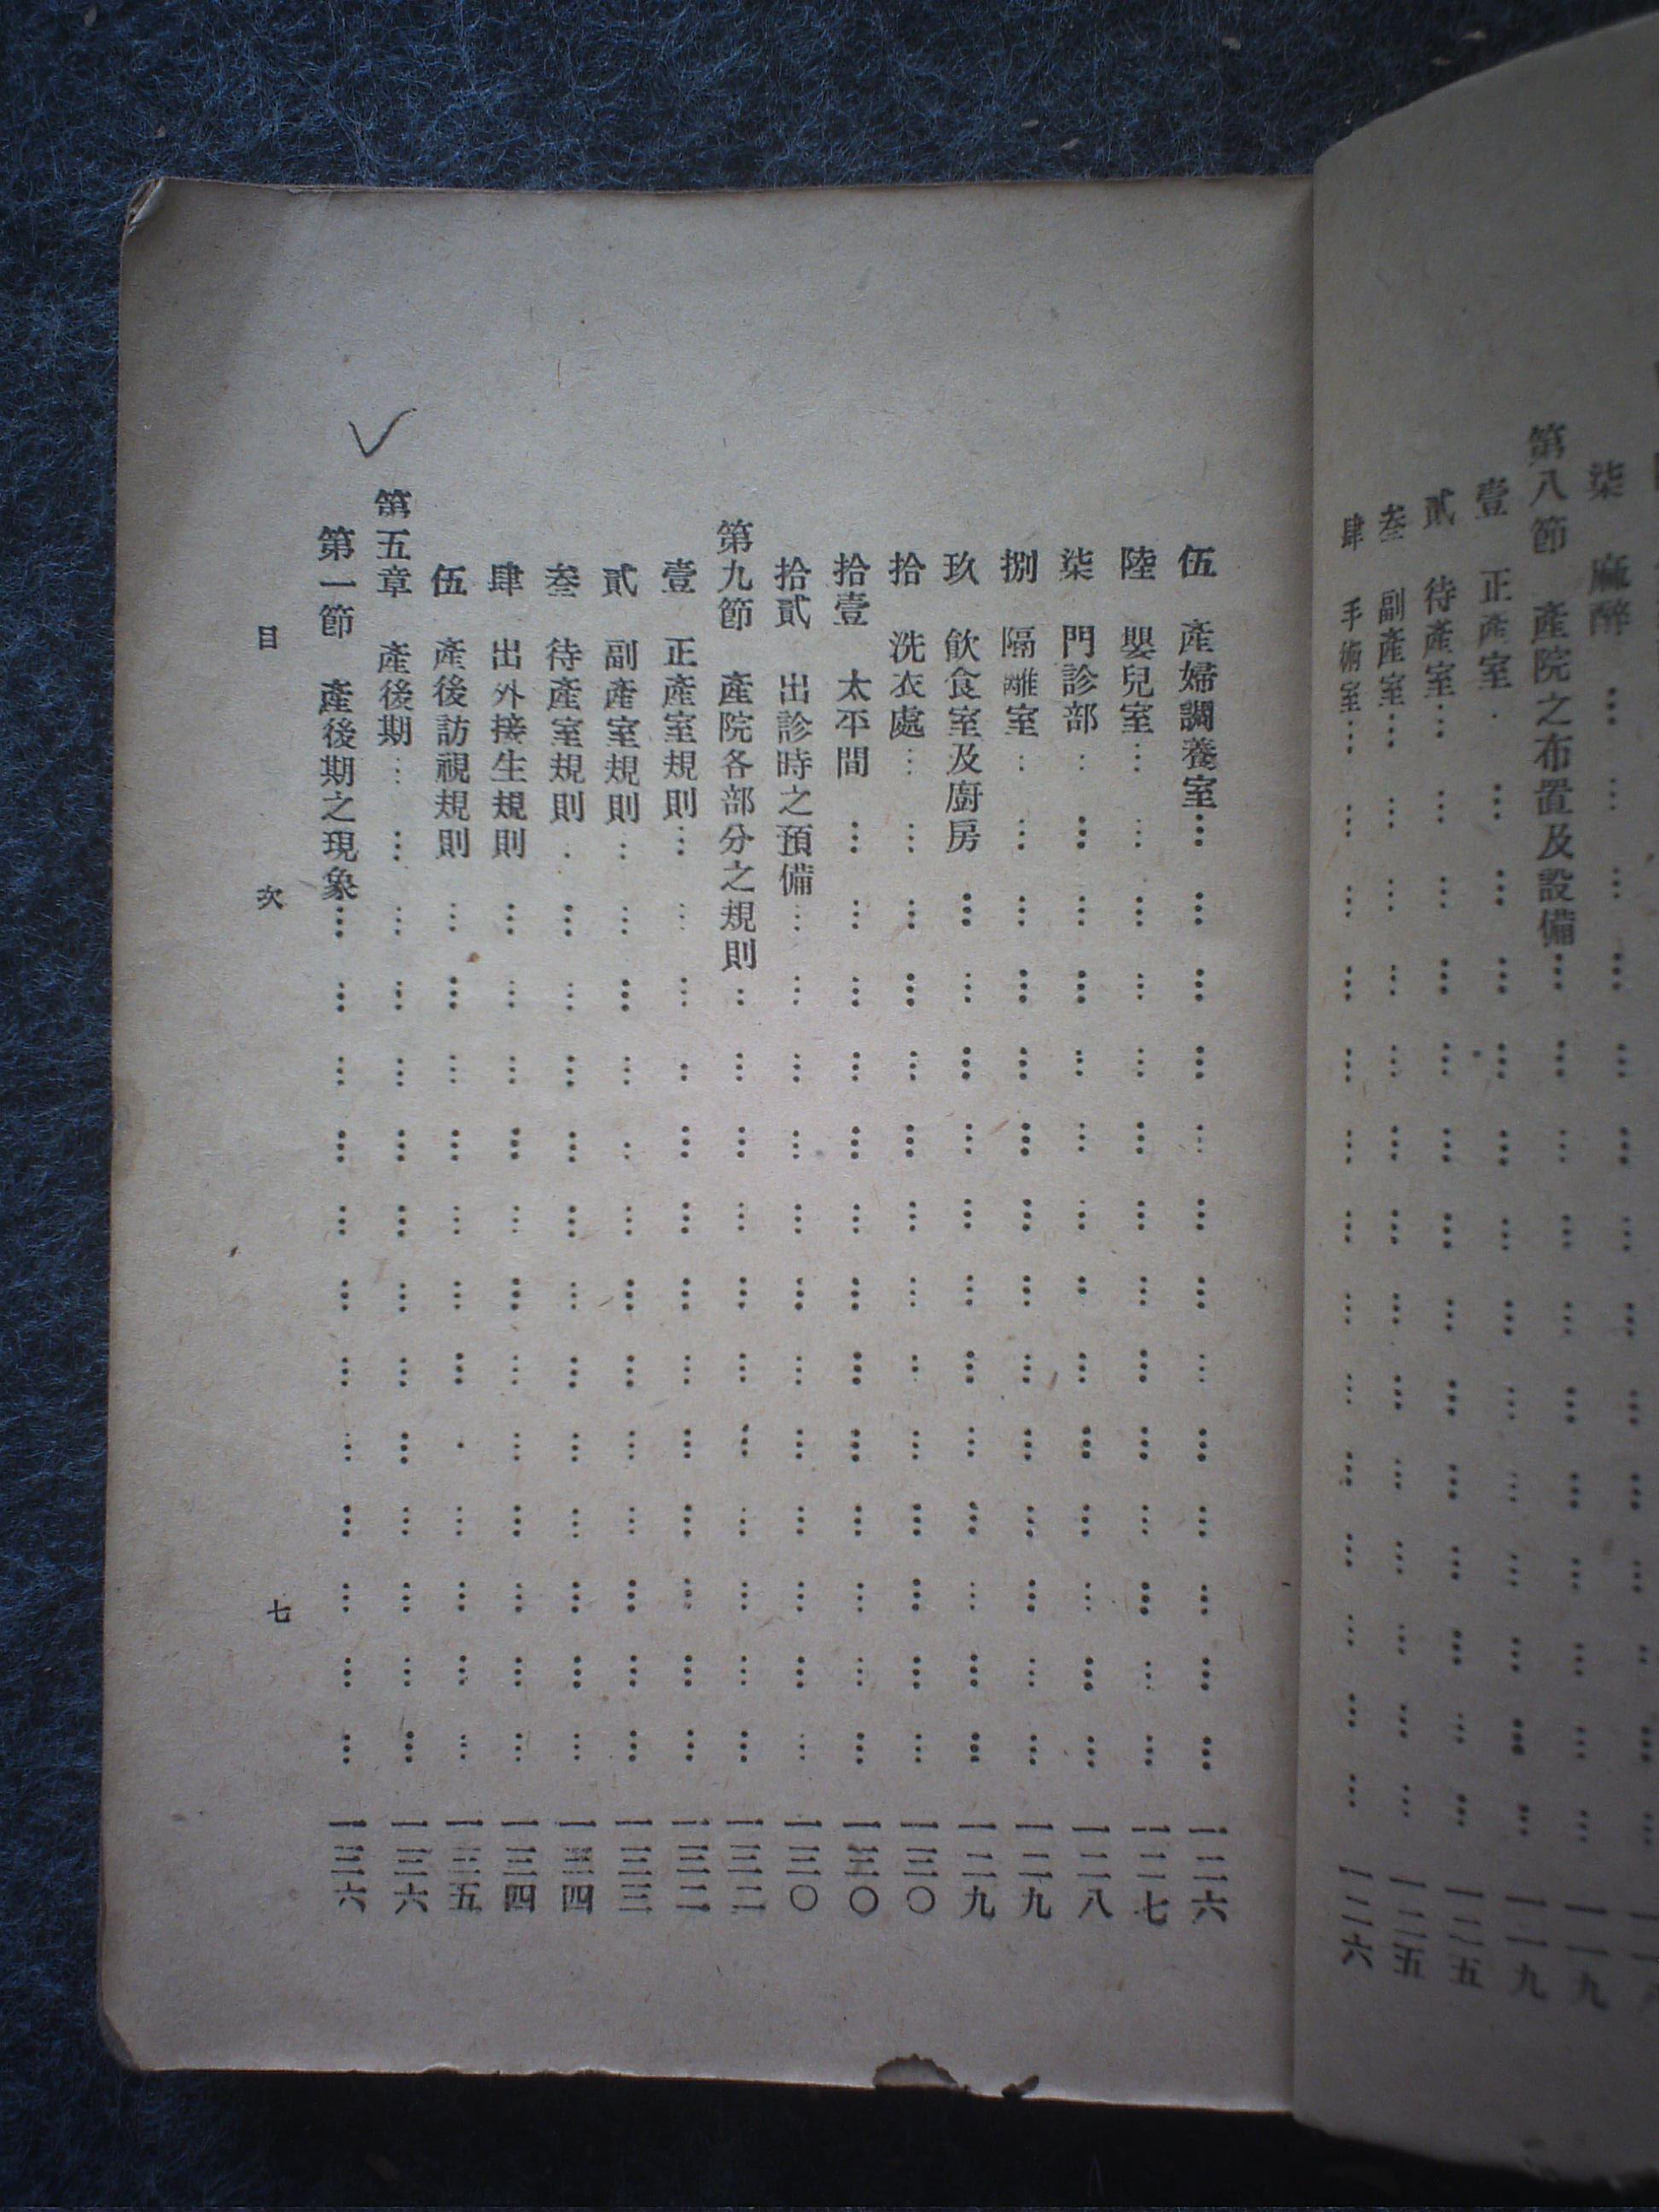 柒 麻醉 一一九
第八節 產院之布置及設備 一一九
壹 正產室 一一九
貳 待產室 一二五
叁 副產室 一二五
肆 手術室 一二六
伍 產婦調養室 一二六
陸 嬰兒室 一二七
柒 門診部 一二八
捌 隔離室 一二九
玖 飲食室及廚房 一二九
拾 洗衣處 一三〇
拾壹 太平間 一三〇
拾貳 出診時之預備 一三〇
第九節 產院各部分之規則 一三二
壹 正產室規則 一三二
貳 副產室規則 一三三
叁 待產室規則 一三四
肆 出外接生規則 一三四
伍 產後訪視規則 一三五
第五章 產後期 一三六
第一節 產後期之現象 一三六
目次 七